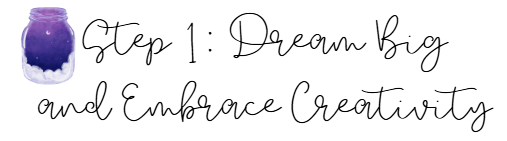 Step 1: Dream Big
and Embrace Creativity